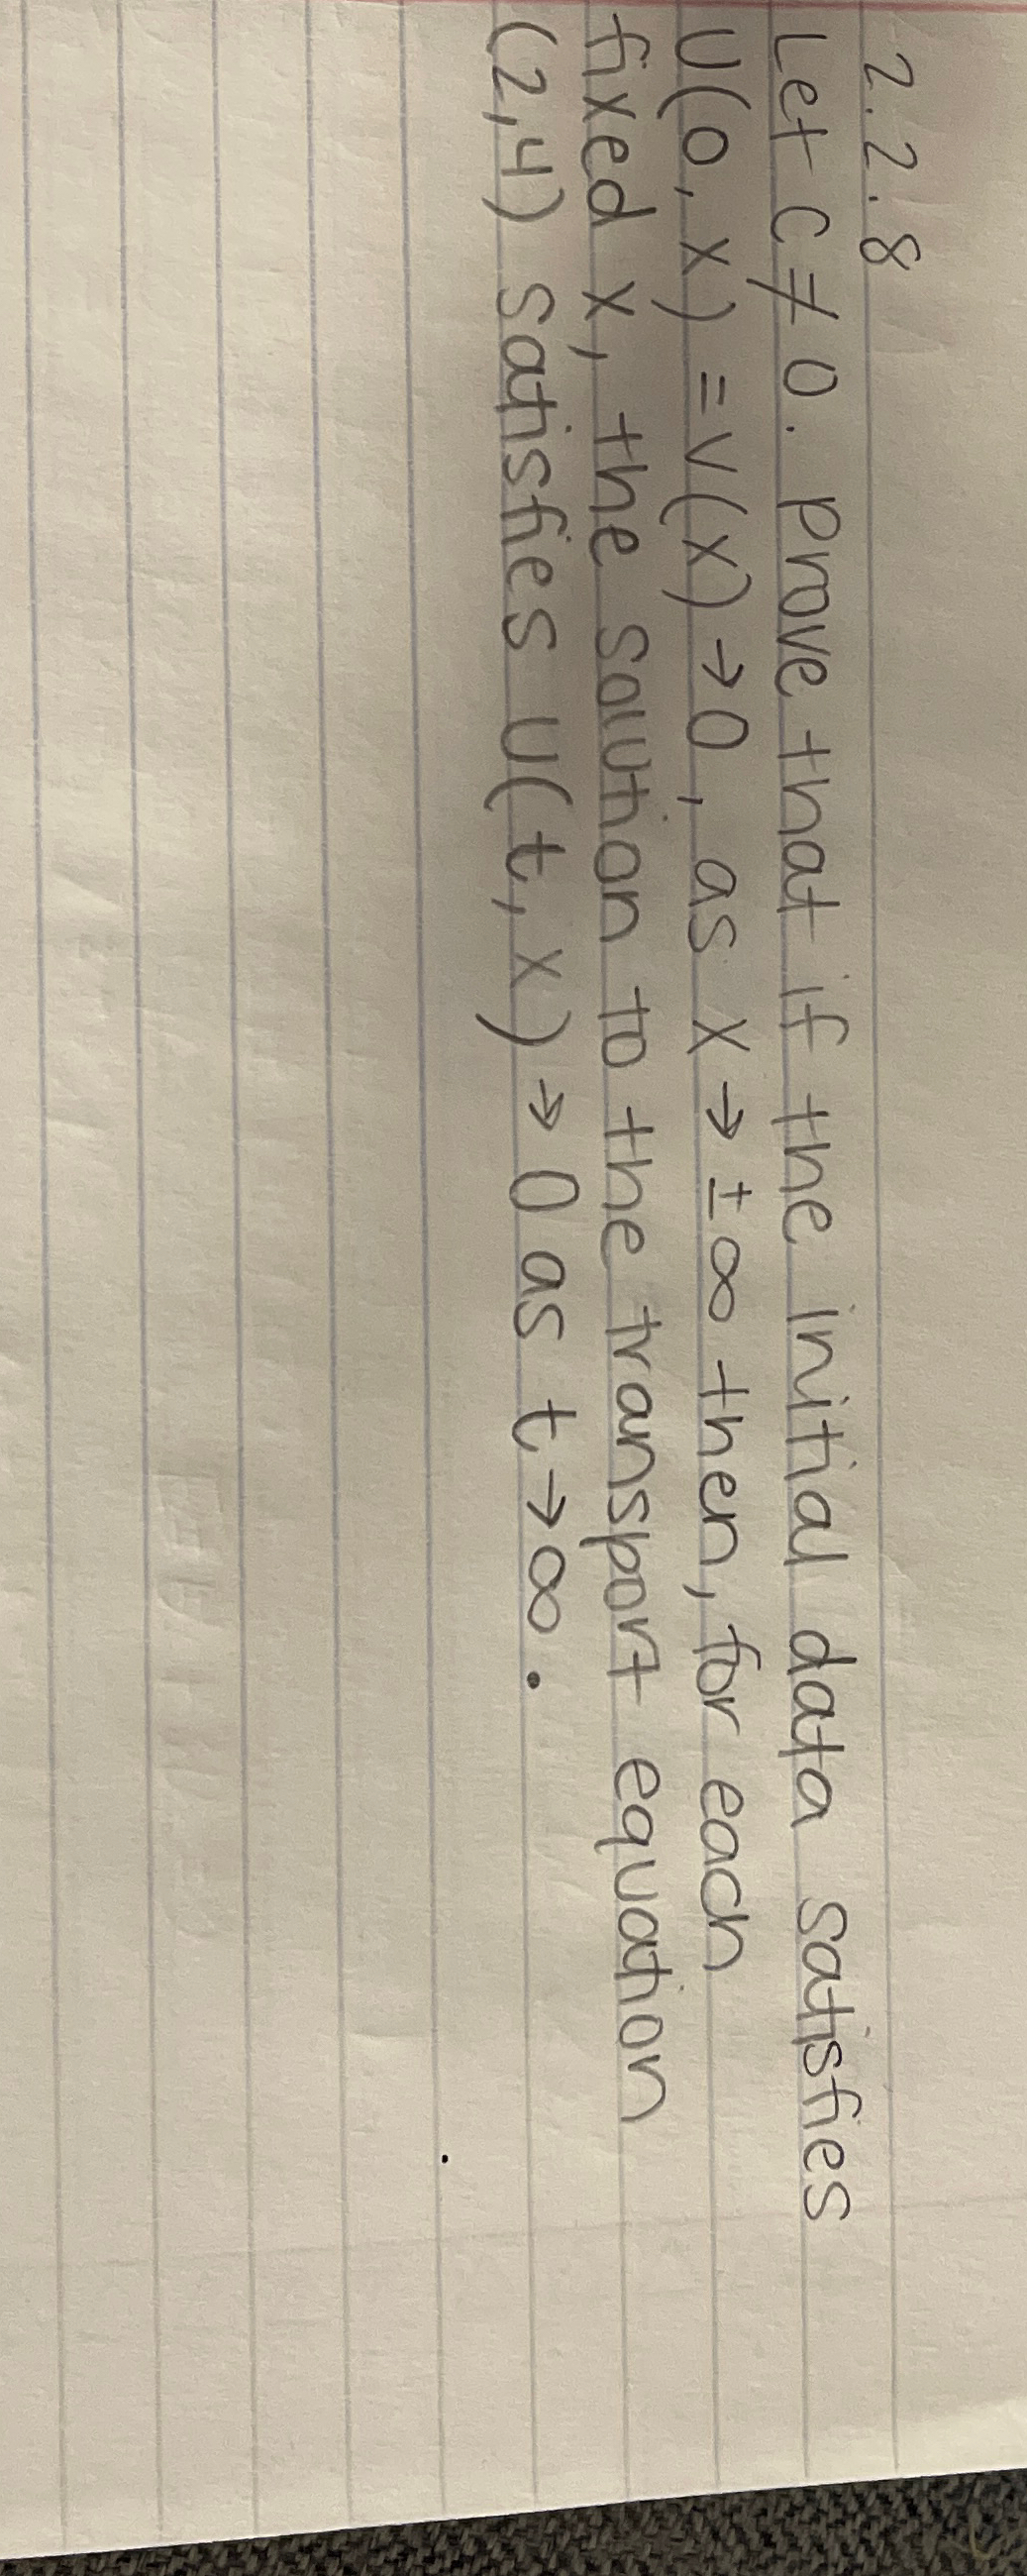 2.2.8
Let c ≠ 0. Prove that if the initial data satisfies
U(0, x) = v(x) → 0, as x → ± ∞ then, for each
fixed x, the solution to the transport equation
(2,4) satisfies U(t, x) → 0 as t → ∞.